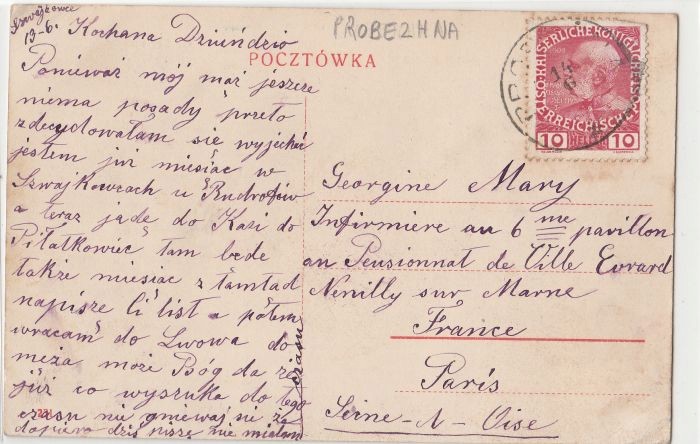 Szwajkowce
19-6.
Kochana Dzieńdzio
Ponieważ mój mąż jeszcze
niema posady przeto
zdecydowałam się wyjechać
jestem już miesiąc w
Szwajkowcach u
a teraz jadę do Kazi do
Piłatkowiec tam będe
także miesiąc z tamtad
napisze Ci list a potem
wracam do Lwowa do
męża może Bóg da że
już co wyszuka do tego
czasu nie gniewaj sie że
dopiero dziś pisze nie miałam
czasu
PROBEZHNA
POCZTÓWKA
10 HELLER 10
Georgine Mary
Infirmiere au 6 me pavillon
au Pensionnat de Ville Evrard
Neuilly sur Marne
France
Paris
Seine-N-Oise